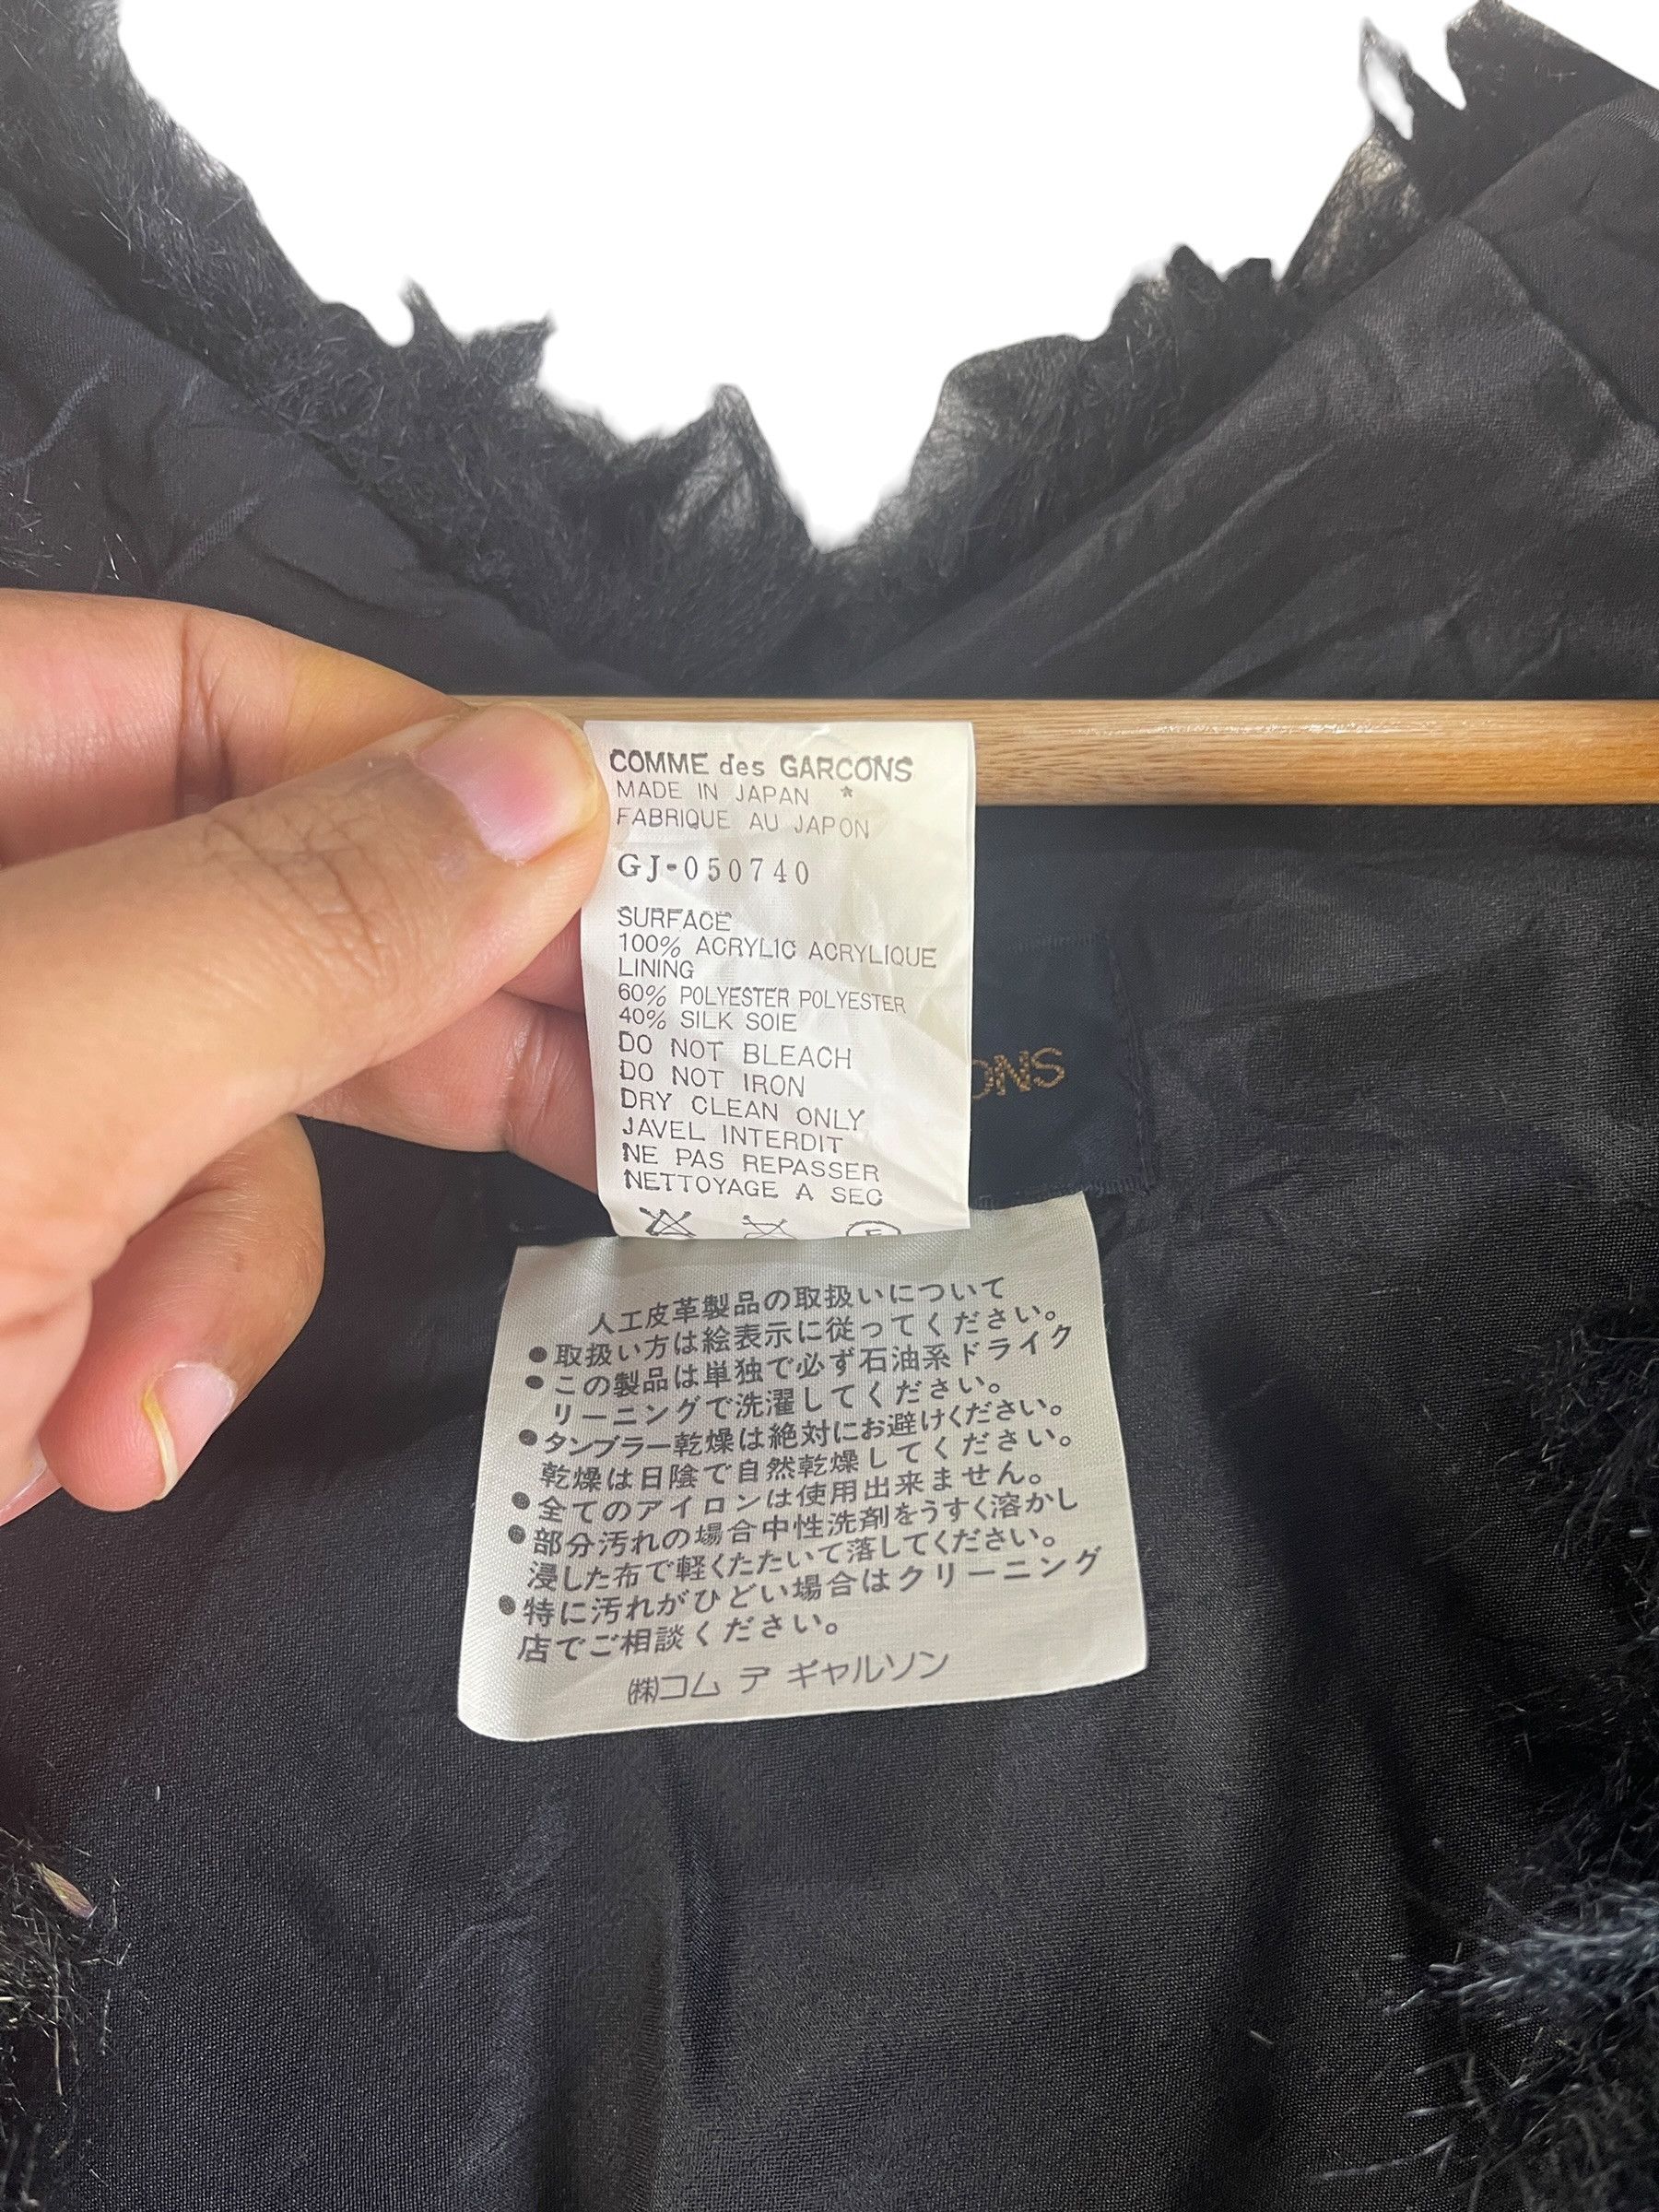 COMME des GARCONS
MADE IN JAPAN *
FABRIQUE AU JAPON
GJ-050740
SURFACE
100% ACRYLIC ACRYLIQUE
LINING
60% POLYESTER POLYESTER
40% SILK SOIE
DO NOT BLEACH
DO NOT IRON
DRY CLEAN ONLY
JAVEL INTERDIT
NE PAS REPASSER
NETTOYAGE A SEC
ONS
人工皮革製品の取扱いについて
●取扱い方は絵表示に従ってください。
●この製品は単独で必ず石油系ドライク
リーニングで洗濯してください。
●タンブラー乾燥は絶対にお避けください。
乾燥は日陰で自然乾燥してください。
●全てのアイロンは使用出来ません。
●部分汚れの場合中性洗剤をうすく溶かし
浸した布で軽くたたいて落してください。
●特に汚れがひどい場合はクリーニング
店でご相談ください。
㈱コム デ ギャルソン